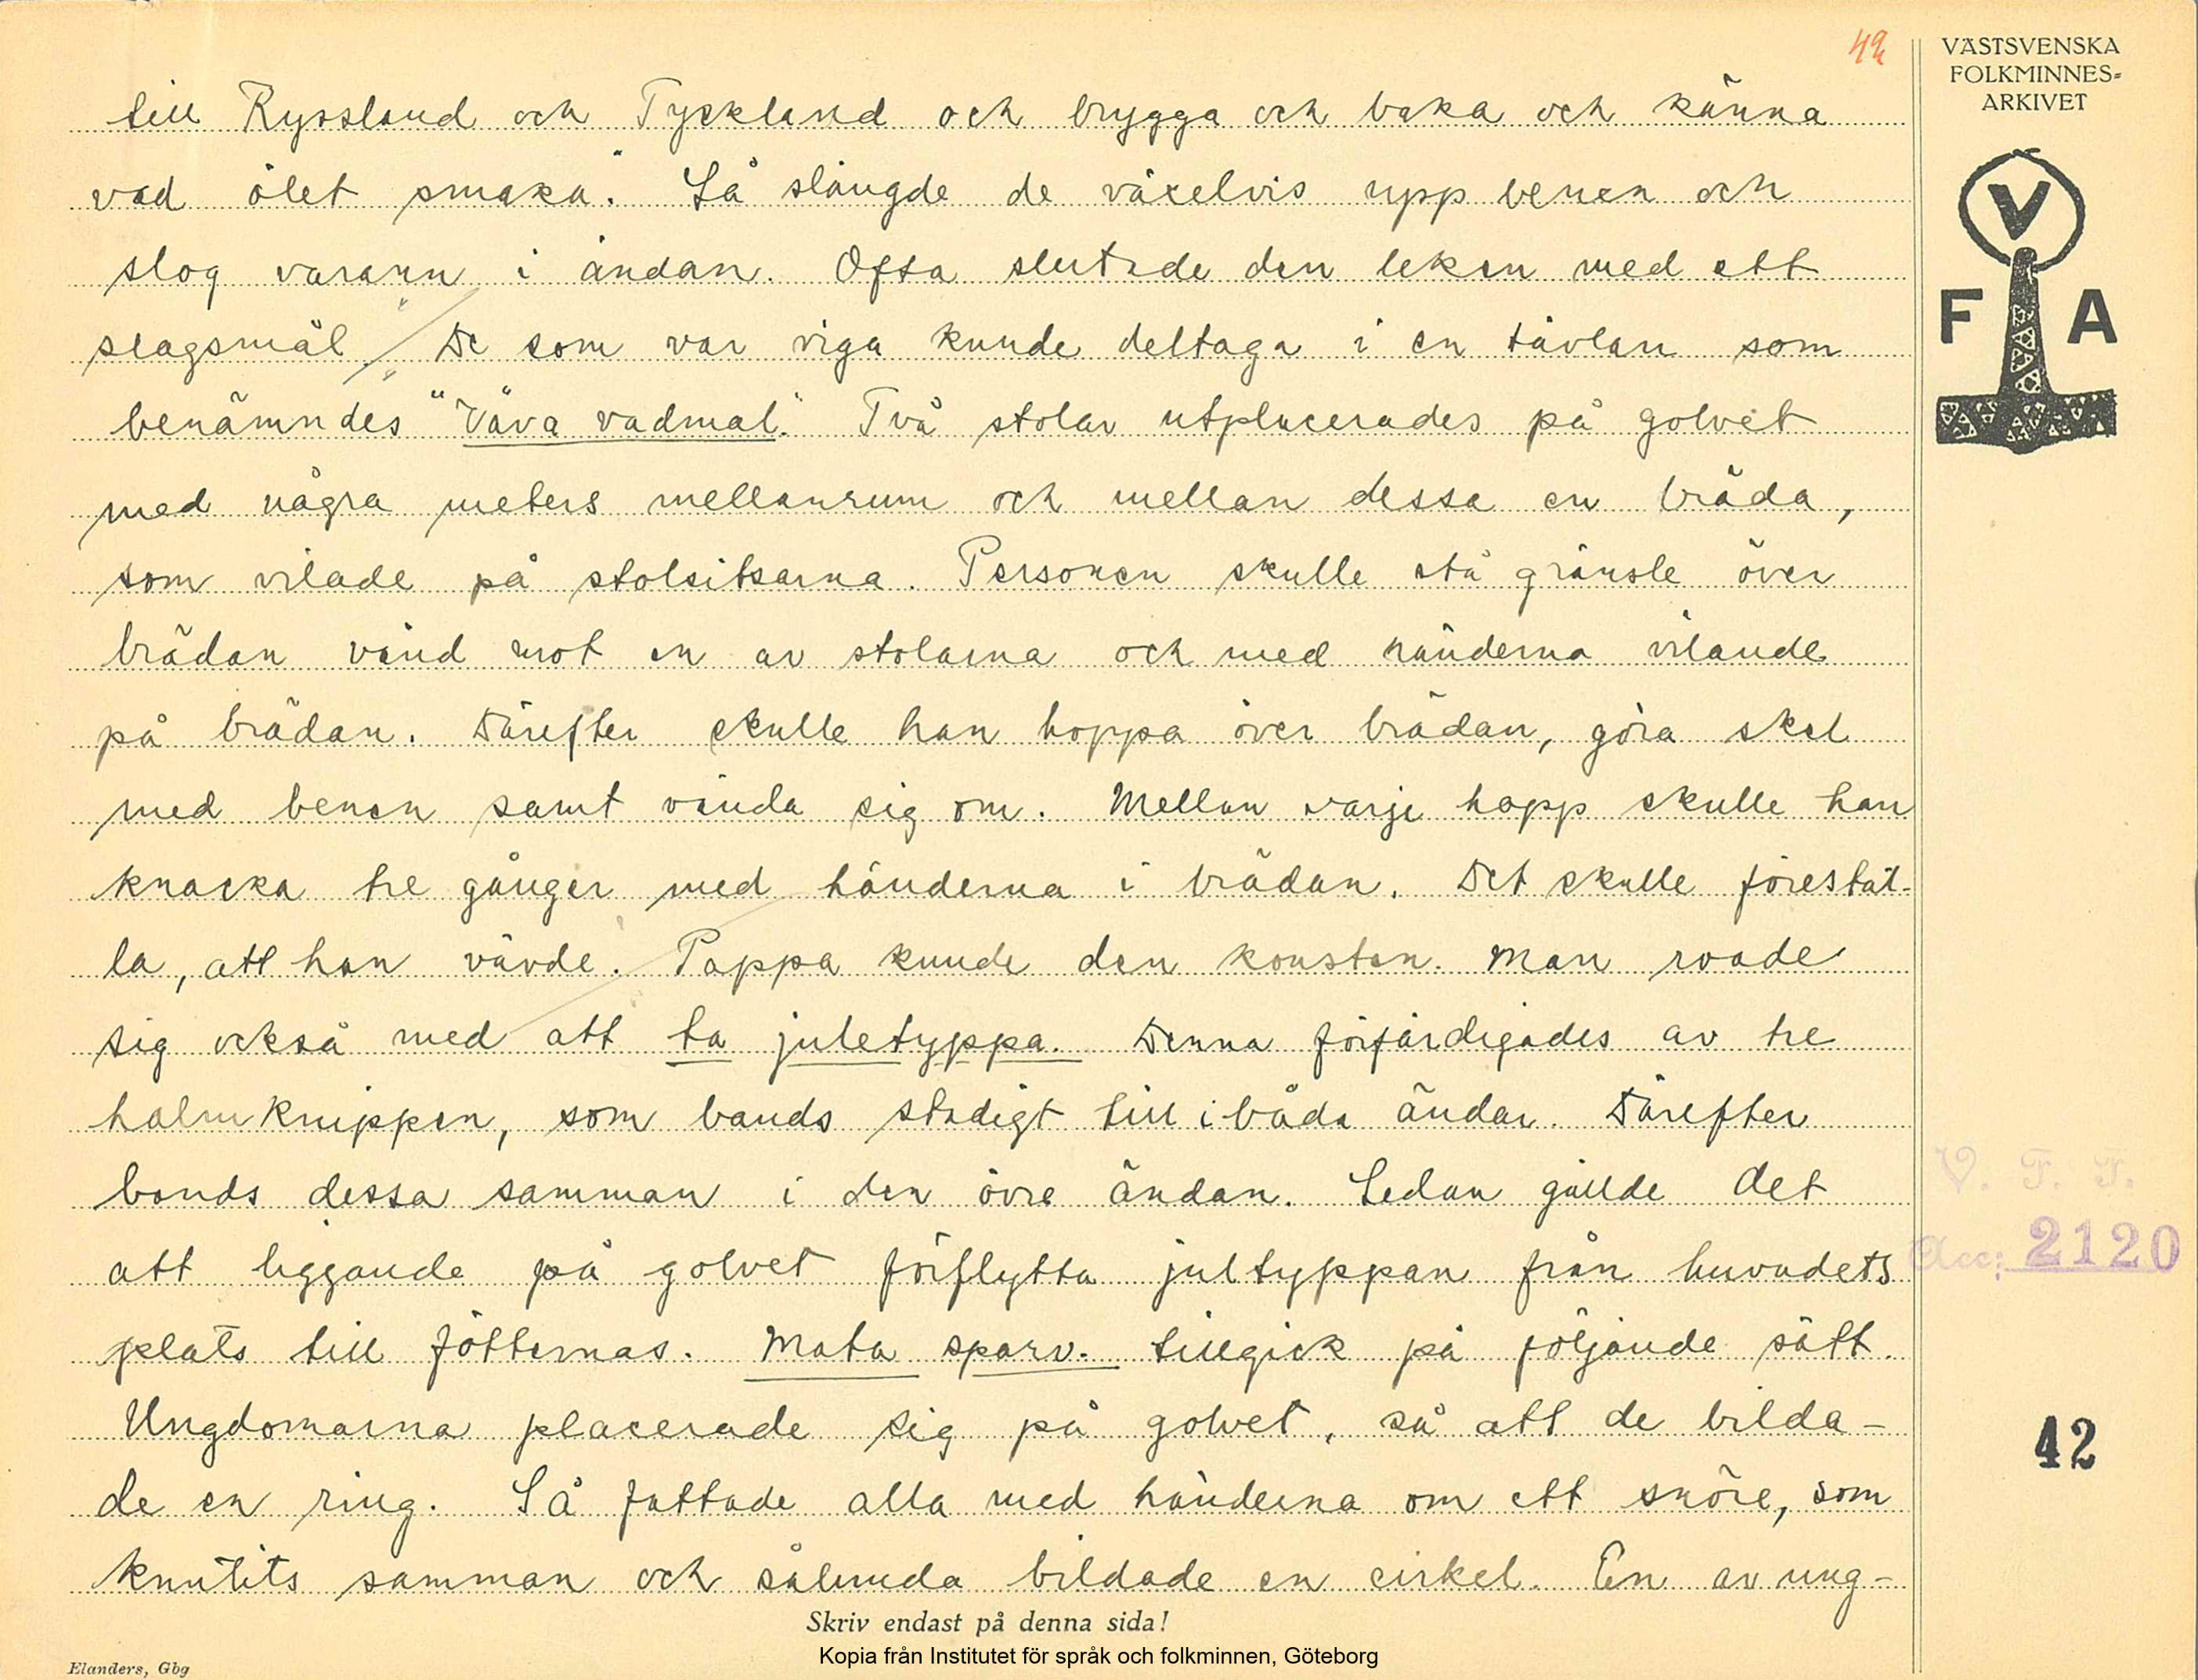 42
VÄSTSVENSKA
FOLKMINNES-
ARKIVET
V
F A
till Ryssland och Tyckland och brygga och baka och känna
vad ölet smaka." Så slängde de växelvis upp benen och
slog varann i ändan. Ofta slutade den leken med ett
slagsmål. De som var viga kunde deltaga i en tävlan som
benämndes "Väva vadmal." Två stolar utplacerades på golvet
med några meters mellanrum och mellan dessa en bräda,
som vilade på stolsitsarna. Personen skulle stå gränsle över
brädan vänd mot en av stolarna och med händerna vilande
på brädan. Därefter skulle han hoppa över brädan, göra skel
med benen samt vända sig om. Mellan varje hopp skulle han
knacka tre gånger med händerna i brädan. Det skulle förestäl-
la, att han vävde. Pappa kunde den konsten. Man roade
sig också med att ta juletyppa. Denna förfärdigades av tre
halmknippen, som bands stadigt till i båda ändar. Därefter
bands dessa samman i den övre ändan. Sedan gällde det
att liggande på golvet förflytta jultyppan från huvudets
plats till fötternas. Mata sparv. tillgick på följande sätt.
Ungdomarna placerade sig på golvet, så att de bilda-
de en ring. Så fattade alla med händerna om ett snöre, som
knutits samman och sålunda bildade en cirkel. En av ung-
V. F. F.
Acc: 2120
42
Skriv endast på denna sida!
Kopia från Institutet för språk och folkminnen, Göteborg
Elanders, Gbg